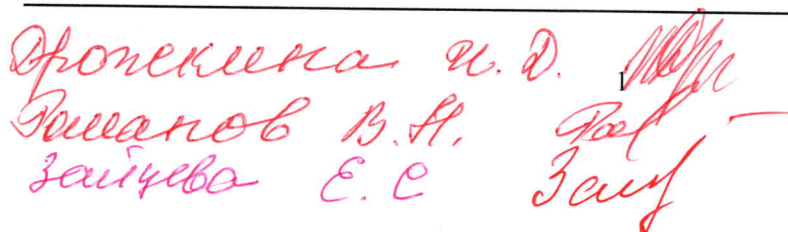 Дрожжкина И. Д. 1
Романов В. Н.
Зайцева Е. С